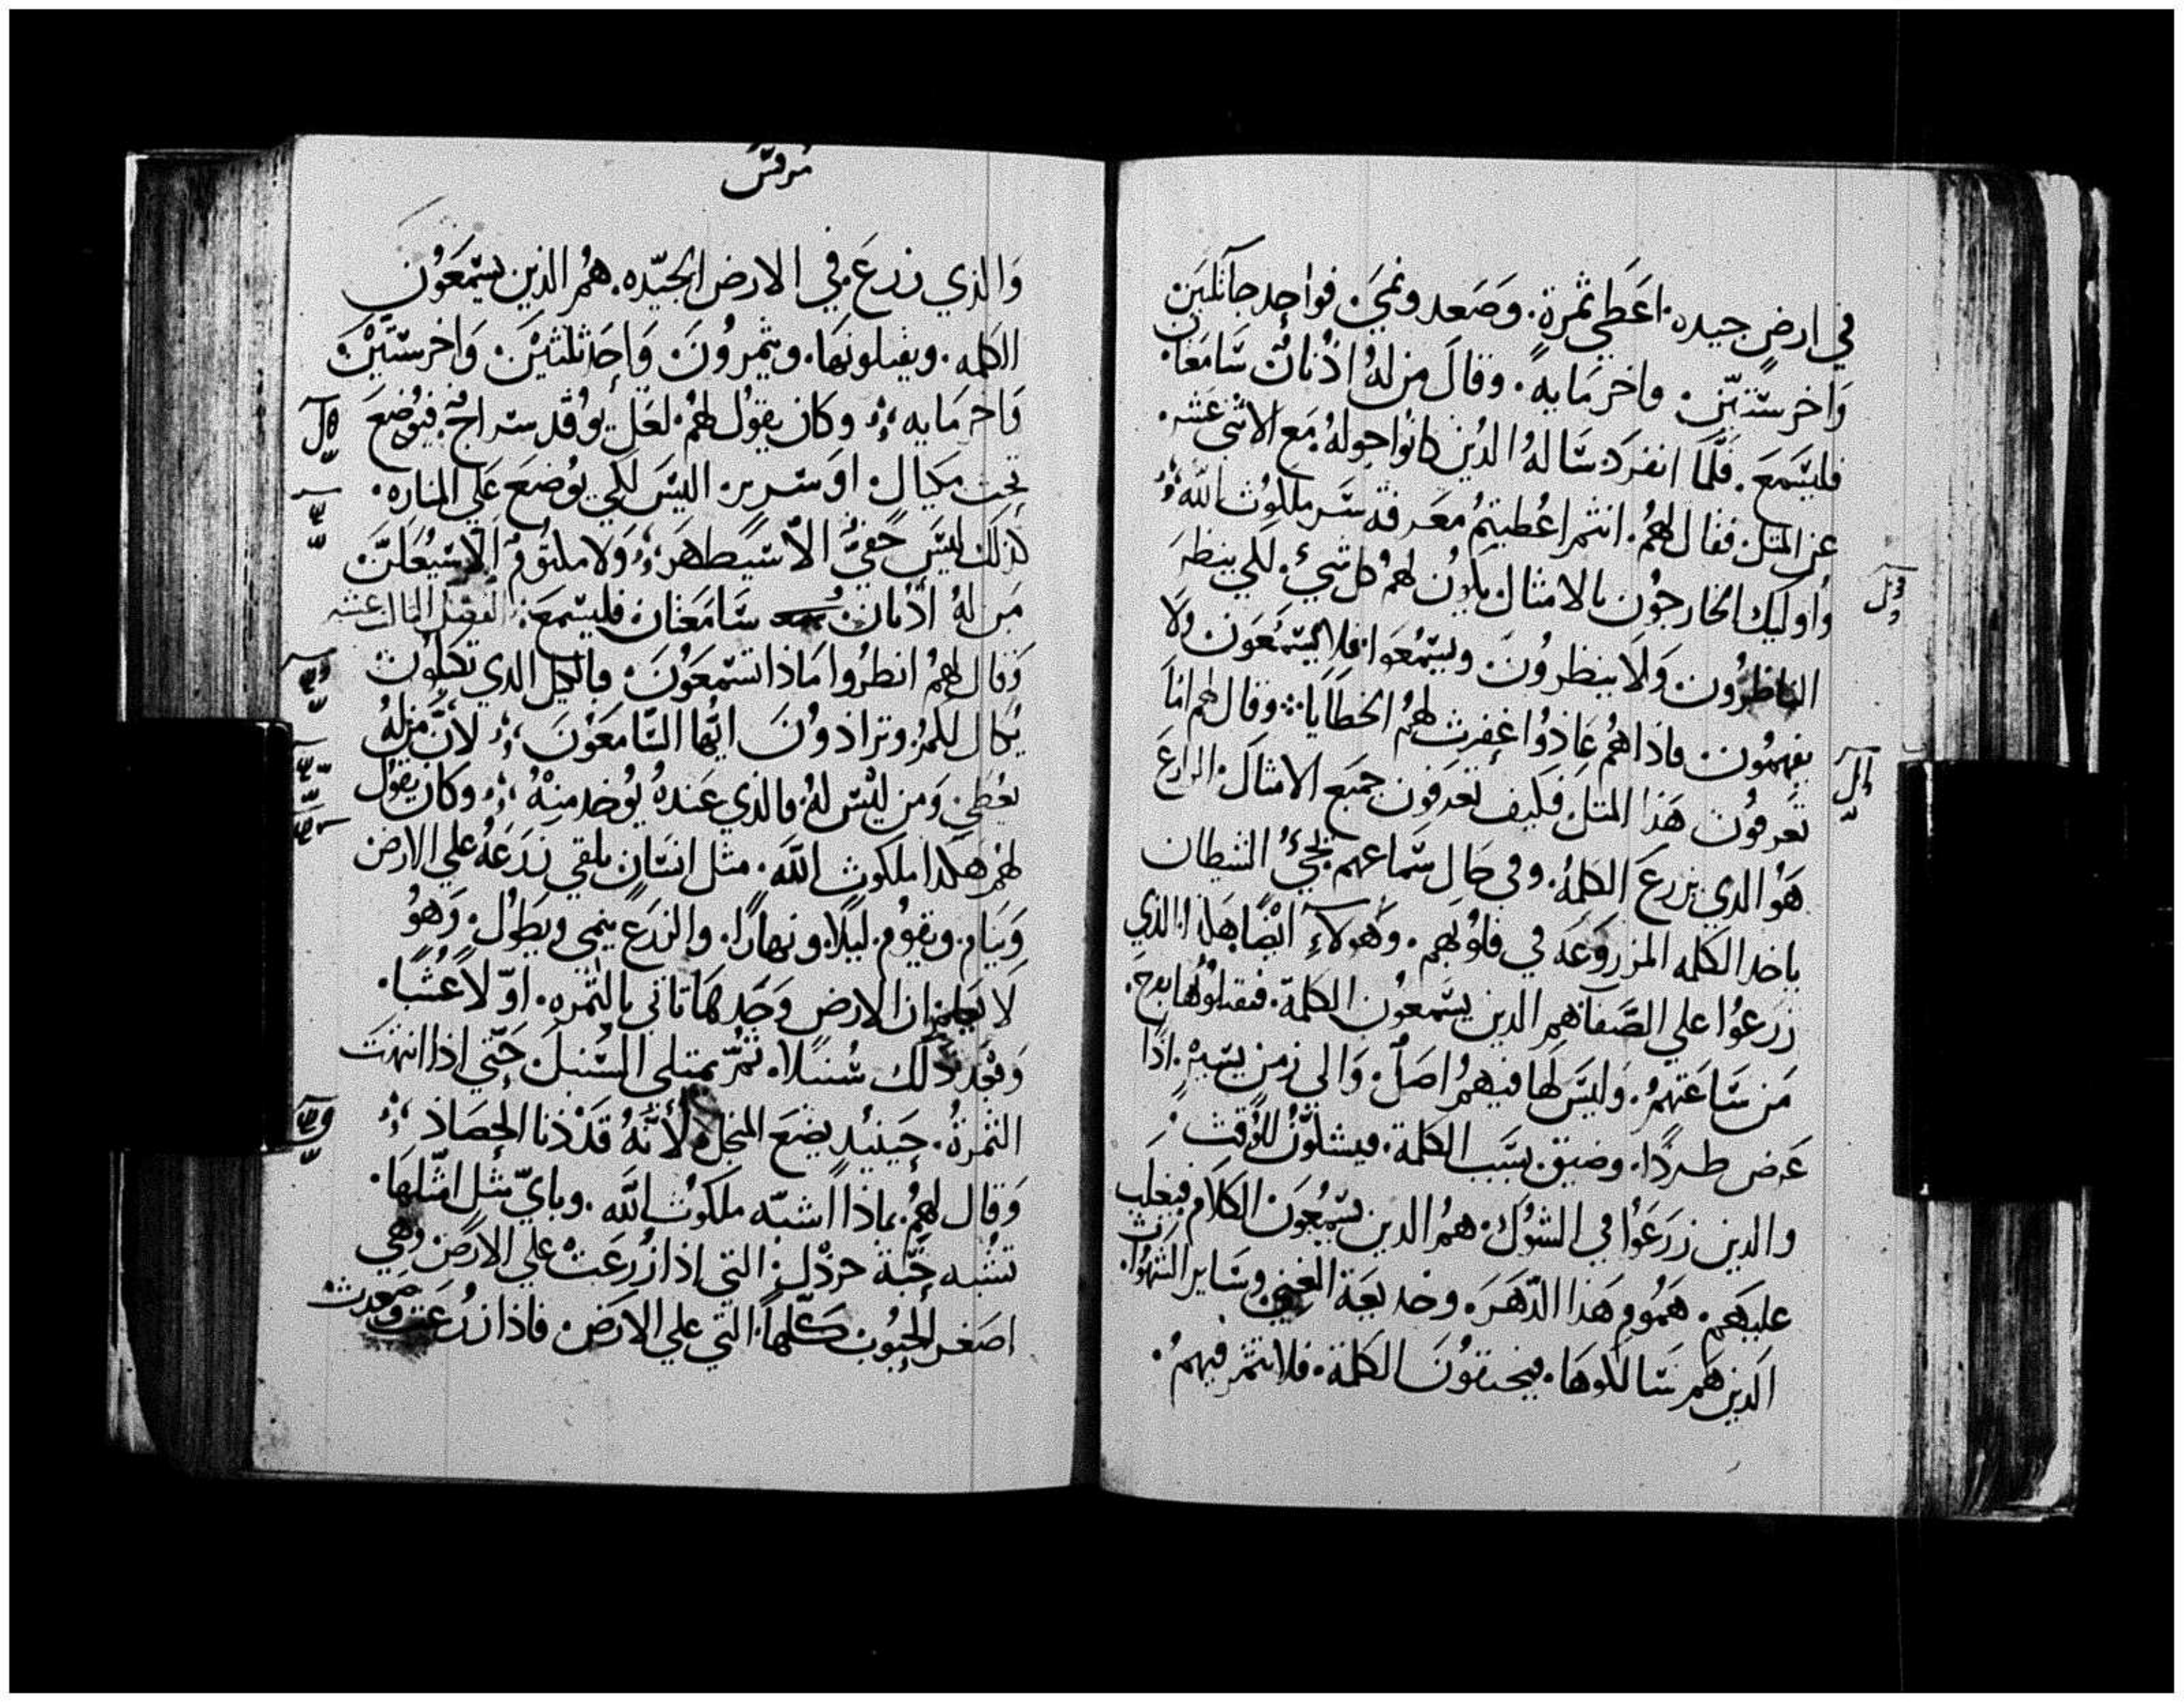 في ارضٍ جيده. اعَطَي ثمرةً. وَصَعد ونمَي. فواحِد جآ ثلثين
وَاخر ستّين. واخر مَايه. وقالَ من لهُ اذُنان سَامعَان
فليسَمعَ. فلَّما انفردَ سَالهُ الدين كانوا حولهُ مَع الاثني عَشر.
عن المتل. فقال لهُم. انتم اعُطيتمُ معَرفة سَر ملكوُت الله
وَاوليك الخارجوُن بالامثال يكوُن لهمُ كل شيُ. لكي ينظرَ
الناظرُون. وَلَا ينظروُنَ. ويسَمُعَوا. فلا يسَمَعَونَ ولَا
يفهمُون. فاذاهمُ عَاذوُا غفرت لهمُ الخطاَيا. وقال لهم امَا
تعَرفوُن هَذا المتل. فكيف تعَرفون جميَع الامثال. الزارعَ
هوُ الدي يزرعَ الكلمهُ. وفي حَال سَماعهم يجيُ الشيطان
ياخد الكلمه المزروَعَه في قلوُبهم. وَهولآءِ ايْضًا هَذا الذي
زرَعوُا علي الصَّفآ هم الدين يسَمعوُن الكلمة. فيقبلوُها بفرح.
مَن سَاعَتهمُ. وَليسَ لها فيهمُ اصَلُ. وَالى زمن يسَير. اذًا
عَرض طردًا. وضيق. بسَبب الكلمة. فيشكوُّن للوُقت.
والدين زرَعَوُا في الشوُك. همُ الدين يسَمعُوَن الكلام فيغلب
عليهَم. هَموُم هَذا الدّهَر. وخديعَة الغني. وسَاير الشهوُات
الَدين هَم سَالكوهَا. فيخنقوُنَ الكلمَة. فلا تثمر فيهمُ.
مُرقسَ
وَالذي زرعَ في الارض الجيّده. همُر الذين يسَمَعَوُن
الكلمه. ويقبلونهَا. ويثمروُنَ. وَاحَد ثلثيْن. وَاخر ستّيْن
وَاخر مَايه. وكان يقوُل لهمُ. لعَل يوُقد سَراجُ. فيوُضَعَ
تحت مَكيال. اوَ سَرير. اليسَ لكي يوُضعَ عَلي المناره.
كذلك ليسَ خفيُّ الاّ سَيظهَر. وَلا مكتوُم الّا سَيُعَلن
مَن لهُ اذْنان سَامَعَتان فليسَمعَ. الفصَل التالت عَشر
وَقال لهمُ انظرُوا مَاذا تسَمَعَوُنَ. فبالكيل الدي تكيلوُن
يُكال لكمُ. وتزاذوُنَ ايُّها السَّامَعَوُنَ. لانَّ مَن لهُ
يعُطَي. وَمن ليسَ لهُ. فالذي عَندهُ يوُخد منِهُ. وكان يقوُل
لهُم هَكدا ملكوت اللهَ. مثل انسَانٍ يلقي زرَعَهُ علي الارض
وَينَام. ويقوُم. ليلًا. ونهارًا. والزرَعَ ينمي ويَطوُل. وَهوُ
لَا يعَلم. ان الارض وَحَدهَا تاتي بالثمره. اوّلاً عَشُبًا.
وَبعَد ذَلك سُنبلا. ثمُّ يمتلي السُنبلَ. حَتّي اذا انتهَت
الثمرةُ. حَينيُد يضَعَ المنجل. لاَنَّهُ قدَذنا الحصَاذ
وَقال لهمُ. بماذا اشبّه ملكوُت الله. وبايّ مثل امثلهَا.
تشبه حَبّة خرذل. التي اذا زُرعَتْ علي الارَض. وَهي
اصَغر الحبوُب كلّها. التّي علي الارَض. فاذا زرُعَت وصَعدت